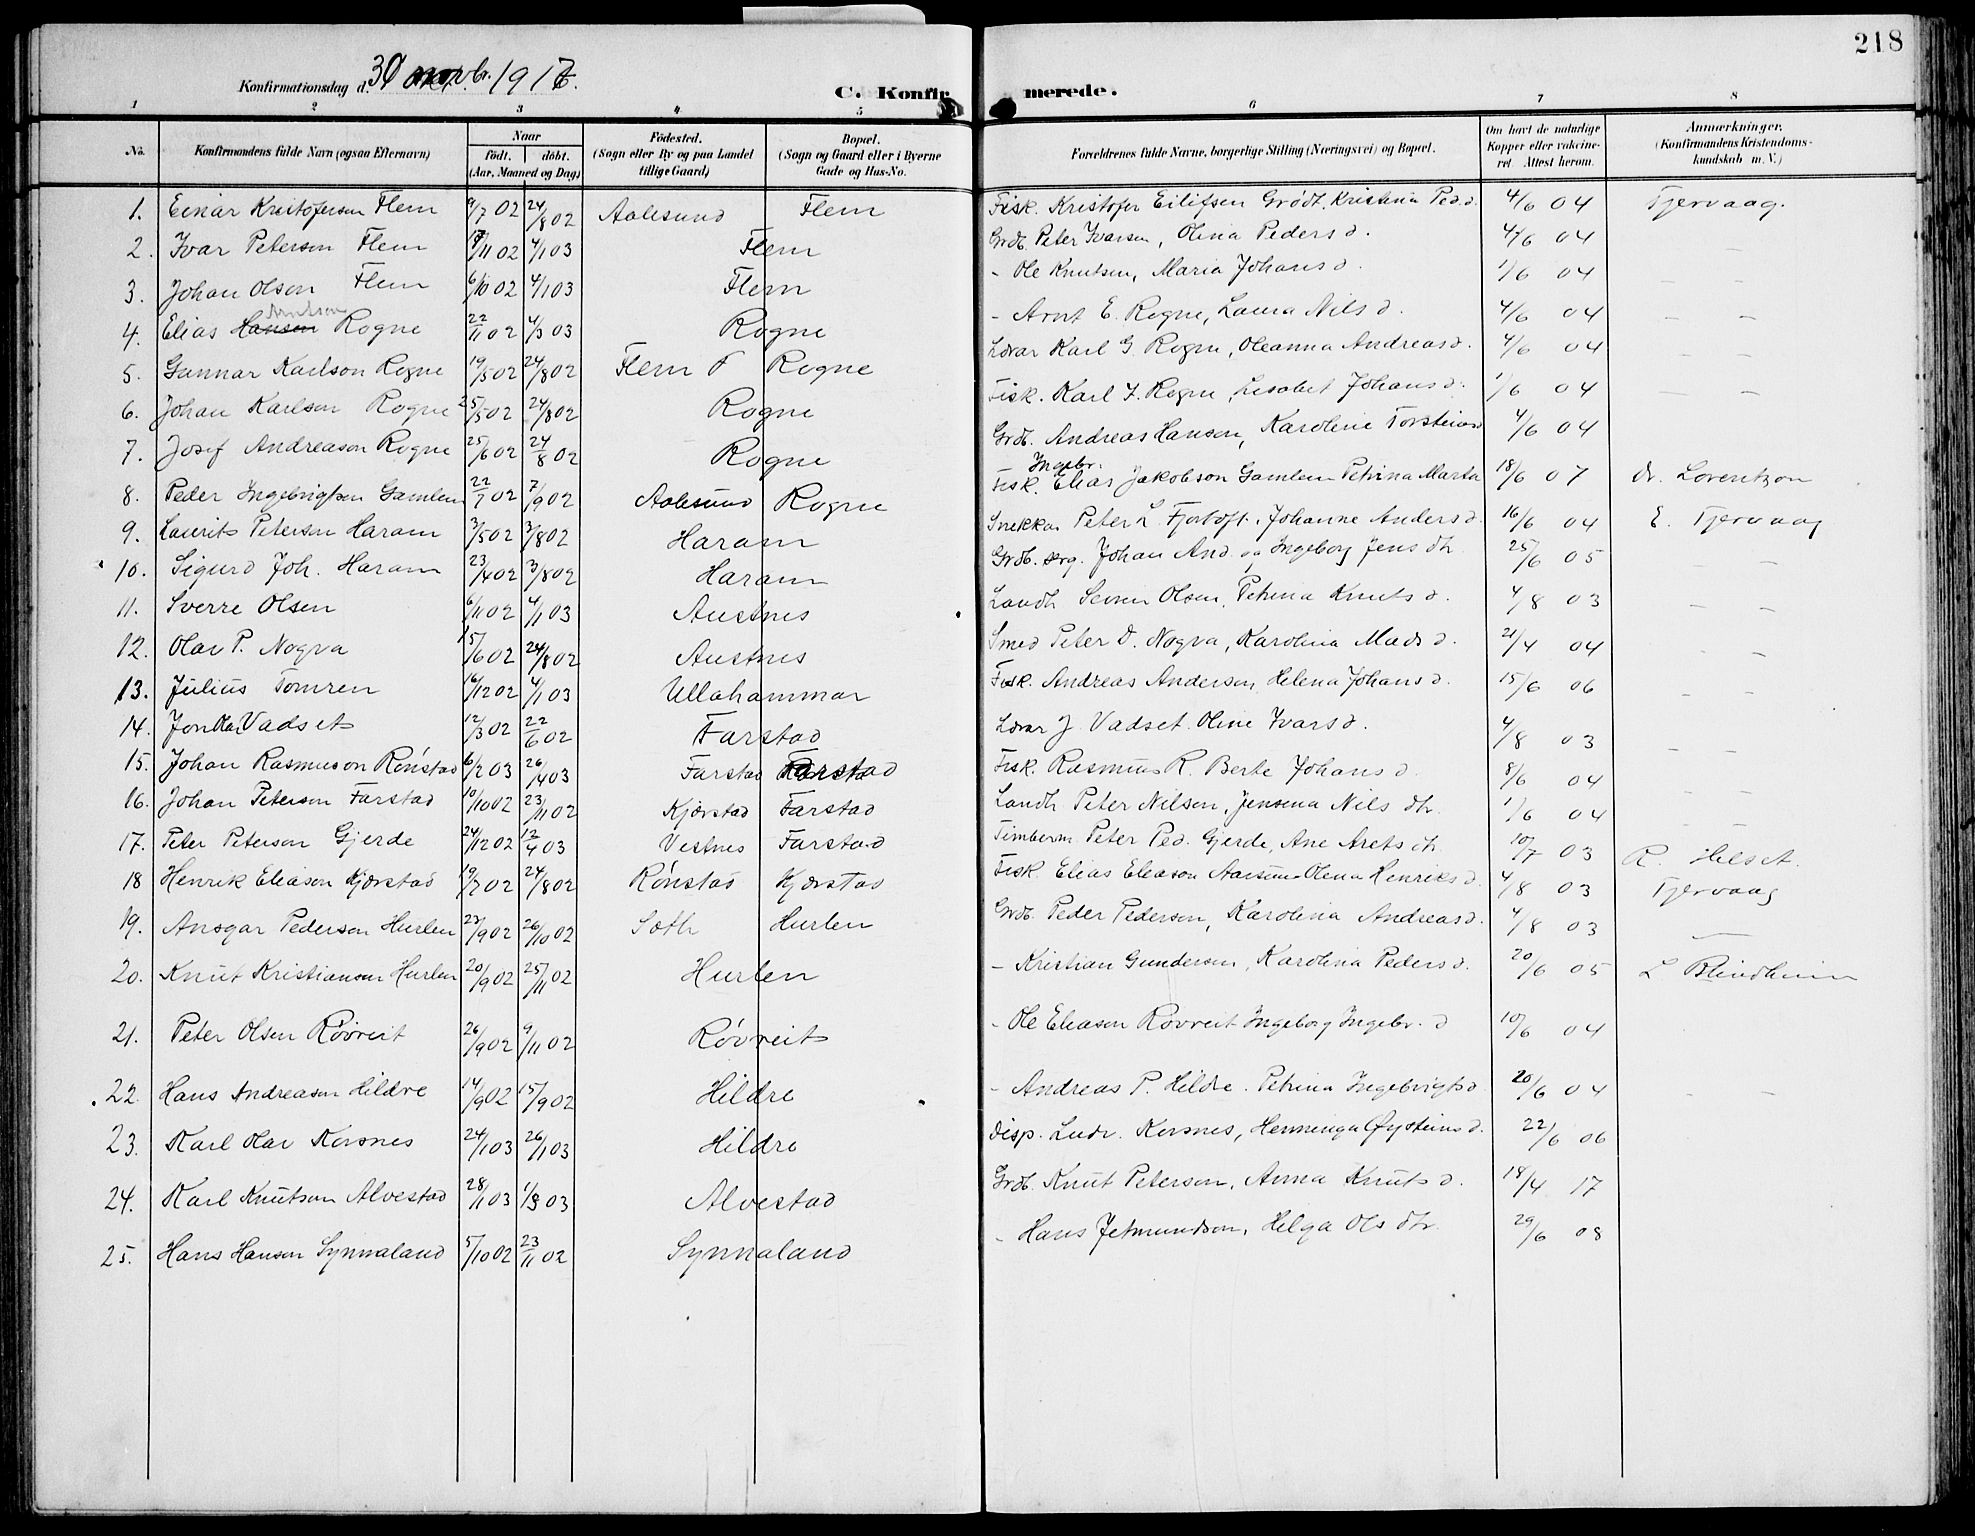 218
Konfirmationsdag d. 30 1917.
C. Konfirmerede.
1 2 3 4 5 6 7 8
No. Konfirmandens fulde Navn (ogsaa Efternavn) Naar født. døbt. (Aar, Maaned og Dag) Fødested. (Sogn eller By og paa Landet tillige Gaard) Bopæl. (Sogn og Gaard eller i Byerne Gade og Hus-No. Forældrenes fulde Navne, borgerlige Stilling (Næringsvei) og Bopæl. Om havt de naturlige Kopper eller vaccineret. Attest herom. Anmærkninger. (Konfirmandens Kristendomskundskab m. V.)
1. Einar Kristofersen Flem 9/7 02 24/8 02 Aalesund Flem Fisk. Kristofer Eilifsen Grødt. Kristina Ped.d. 4/6 04 Tjervaag.
2. Ivar Peterson Flem /11 02 4/1 03 Flem Grdb. Peter Ivarsen, Olina Peders d. 4/6 04 – –
3. Johan Olsen Flem 6/10 02 4/1 03 Flem - Ole Knutsen, Maria Johans d. 1/6 04 – –
4. Elias Hansen Arntson Rogne 22/11 02 4/3 03 Rogne - Arnt E. Rogne, Laura Nils d. 4/6 04 – –
5. Gunnar Karlson Rogne 19/5 02 24/8 02 Flem Rogne Lærar Karl G. Rogne, Oleanna Andreas d. 4/6 04 – –
6. Johan Karlsen Rogne 25/5 02 24/8 02 Rogne Fisk. Karl I. Rogne, Lisabet Johans d. 1/6 04 – –
7. Josef Andreason Rogne 25/6 02 24/8 02 Rogne Grdb. Andreas Hanson, Karoline Torsteinsd 4/6 04
8. Peder Ingebrigtsen Gamlem 22/7 02 7/9 02 Aalesund Rogne Fisk. Ingebr. Elias Jakobson Gamlem Petrina Marta 18/6 07 dr. Lorentzon
9. Laurits Peterson Haram 3/5 02 3/8 02 Haram Snekkar Peter L. Fjortoft, Johanne Anders d. 16/6 04 E. Tjervaag
10. Sigurd Joh. Haram 23/4 02 3/8 02 Haram Grdb. Johan And. og Ingeborg Jens dtr. 25/6 05 – –
11. Sverre Olsen 6/11 02 4/1 03 Austnes Landh Olsen, Petrina Knuts d. 4/8 03 – –
12. Olav P. Nogva 15/6 02 24/8 02 Austnes Smed Peter O. Nogva, Karolina Mads d. 21/4 04 – –
13. Julius Tomren 16/12 02 4/1 03 Ullahammar Fisk. Andreas Andersen, Helena Johans d. 15/6 06 – –
14. Jon Vadset 12/3 02 22/6 02 Farstad Lærar J. Vadset. Oline Ivars d. 4/8 03 – –
15. Johan Rasmuson Rønstad 16/2 03 26/4 03 Farstad Farstad Fisk. Rasmus R. Berte Johans d. 8/6 04 – –
16. Johan Peterson Farstad 10/10 02 23/11 02 Kjærstad Farstad Landh Peter Nilsen, Jensena Nils dtr. 1/6 04 – –
17. Peter Peterson Gjerde 24/12 02 12/4 03 Vestnes Farstad Timberm Peter Ped. Gjerde, Ane dtr. 10/7 03 R. Helset.
18 Henrik Eliason Kjærstad 19/7 02 24/8 02 Rønstad Kjærstad Fisk. Elias Eleason Olena Henriks d. 4/8 03 Tjervaag
19. Ansgar Pederson Hurlen 23/9 02 26/10 02 Søth Hurlen Grdb. Peder Pederson, Karolina Andreas d. 4/8 03 –
20. Knut Kristianson Hurlen 20/9 02 25/11 02 Hurlen - Kristian Gunderson, Karolina Peders d. 20/6 05 L Blindheim
21. Peter Olsen Røvreit 26/9 02 9/11 02 Røvreit - Ole Eleason Røvreit Ingeborg Ingebr. d 10/6 04
22. Hans Andreason Hildre 14/9 02 15/9 02 Hildre - Andreas P. Hildre. Petrina Ingebrigts d. 20/6 04 – –
23. Karl Olav Kors­nes 24/1 03 26/1 03 Hildre Disp. Ludv. Korsnes, Henninga Øysteins d. 22/6 06
24. Karl Knutson Alvestad 28/1 03 03 Alvestad Grdb. Knut Peterson, Anna Knuts d. 18/4 17
25. Hans Hanson Synnaland 5/10 02 23/11 02 Synnaland - Hans Jetmundson, Helga Ols dtr. 29/6 08